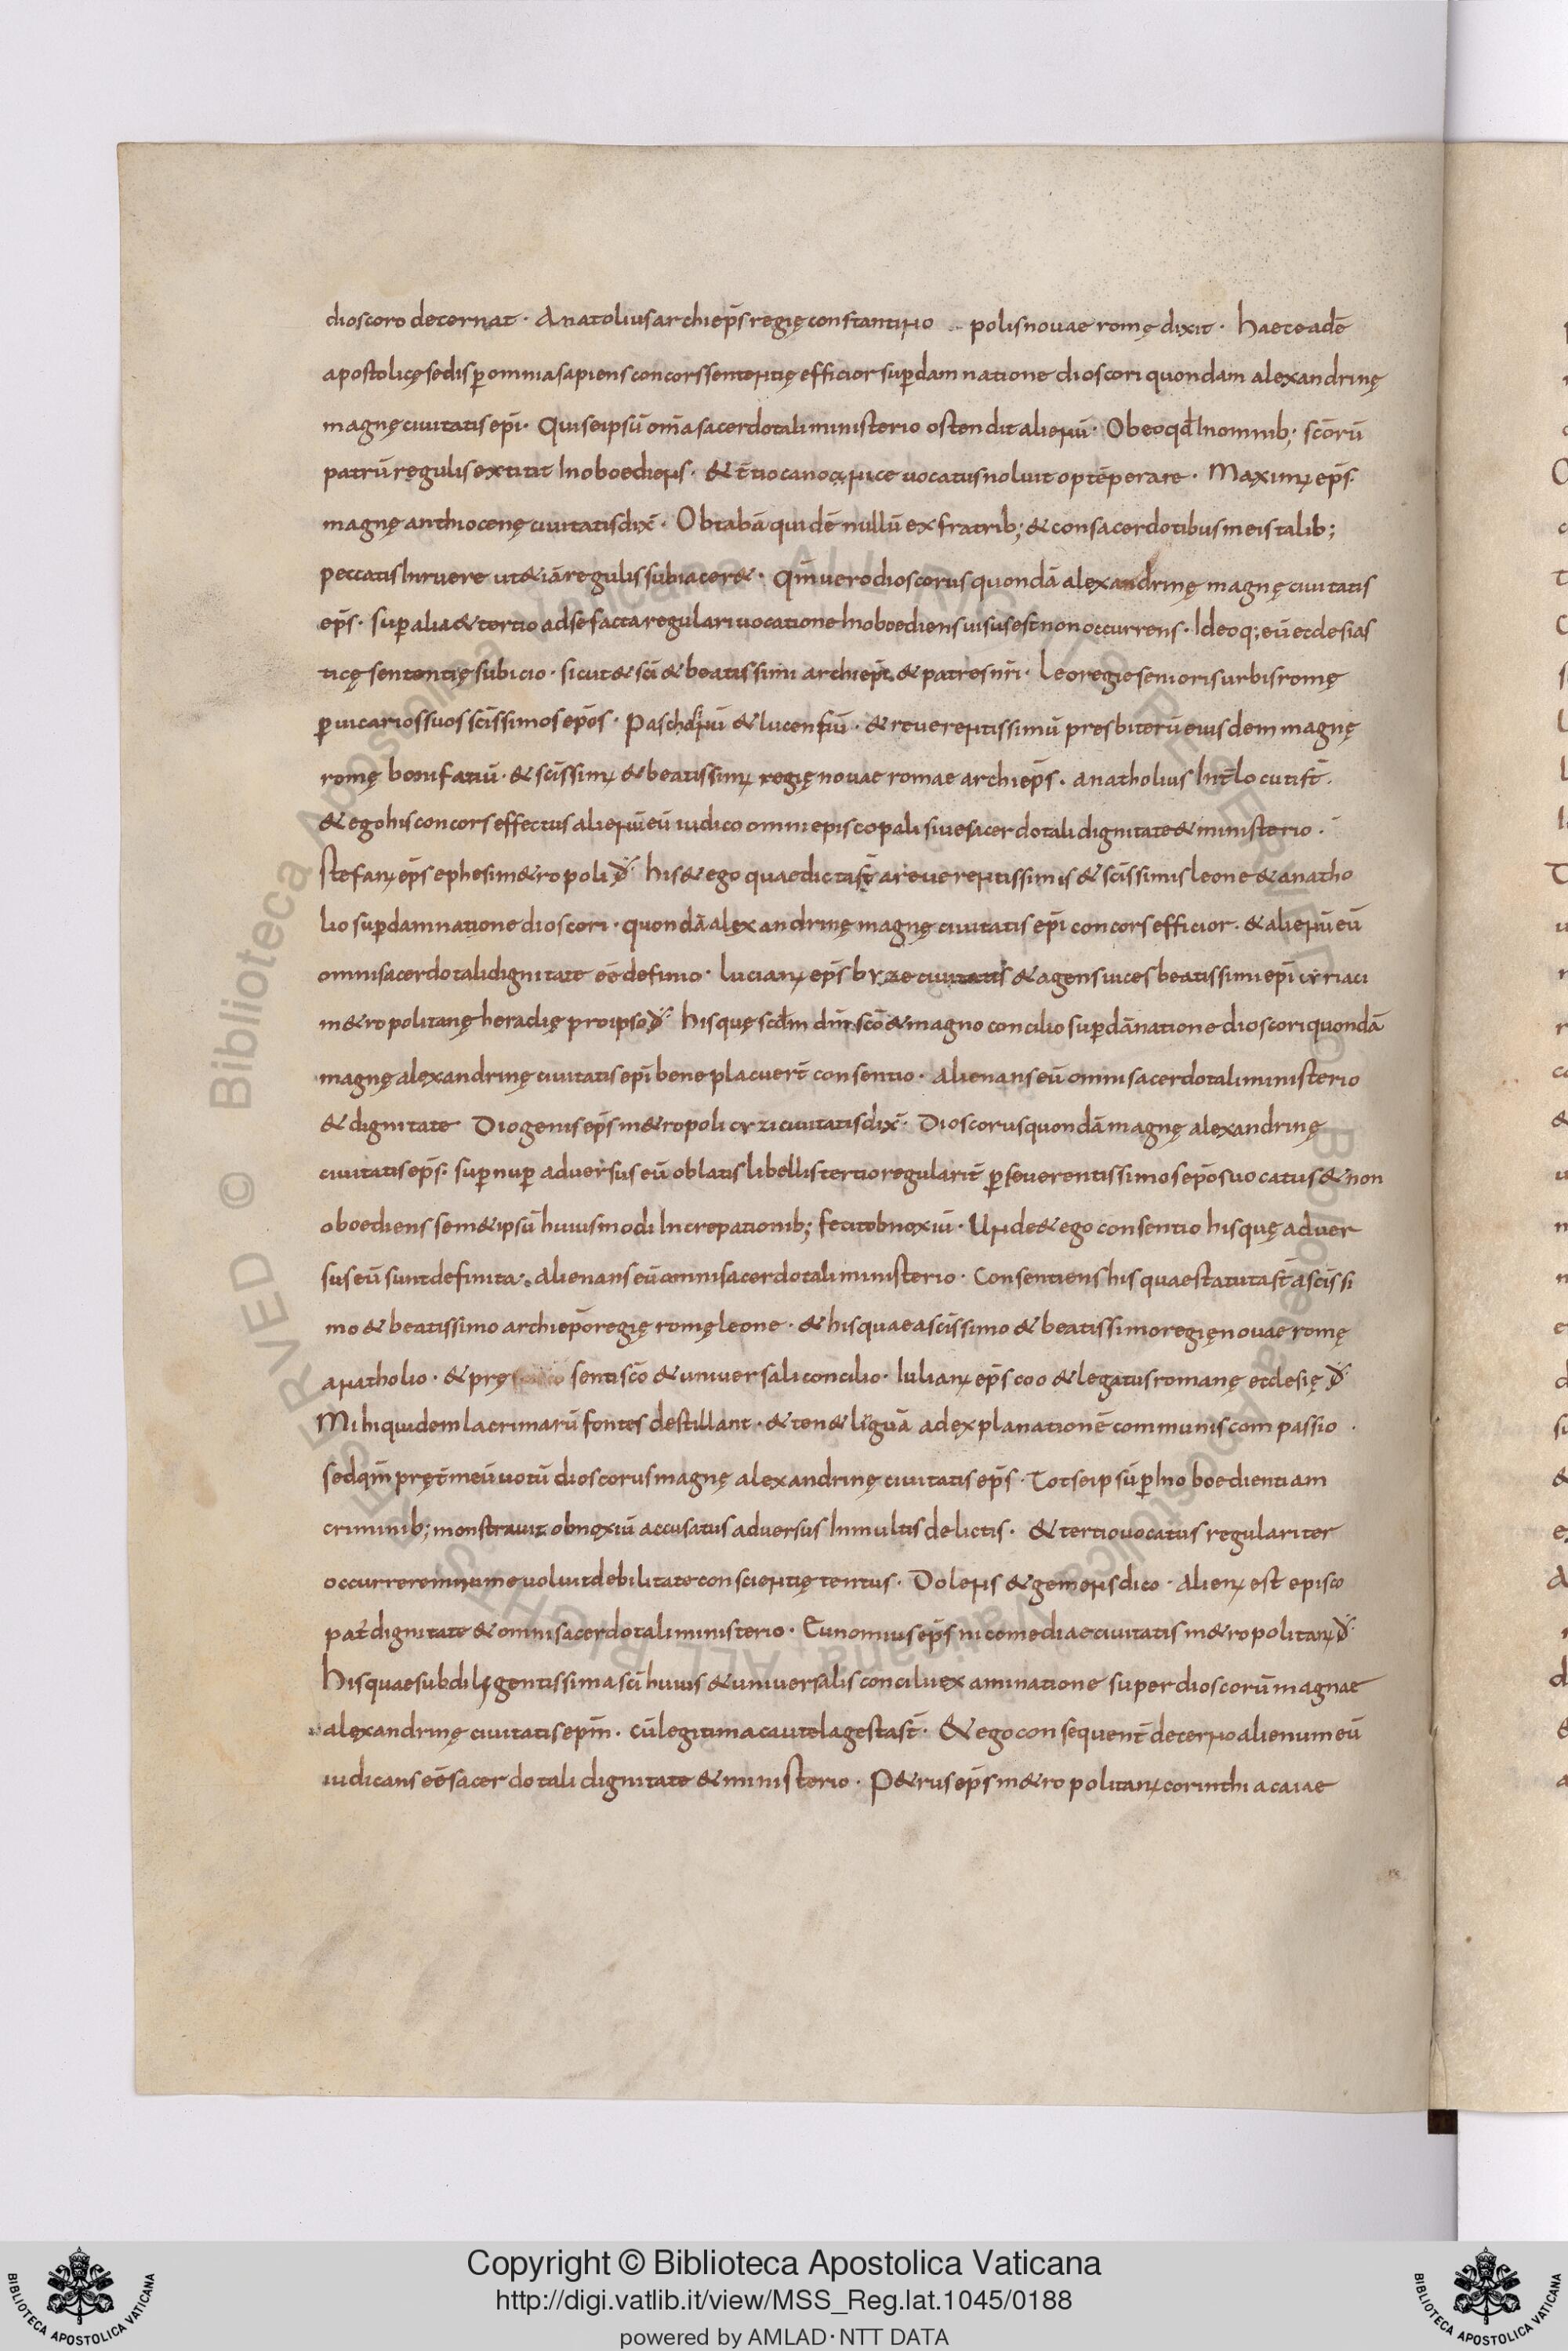 dioscoro decernat · Anatolius archiep̄s regię constantino polis novae romę dixit · haec eadē
apostolicę sedis p̱ omnia sapiens concors sententię efficior sup̱ damnatione dioscori quondam alexandrinę
magnę civitatis ep̄i · Qui seipsū om̄a sacerdotali ministerio ostendit alienū · Ob eo qd̄ In omnib; sc̄orū
patrū regulis extitit Inoboediens · & t̄tio canonice vocatus noluit optēperare · Maximꝰ ep̄s ·
magnę anthiocenę civitatis dix̄ · Obtabā quidē nullū ex fratrib; & consacerdotibus meis talib;
peccatis Inruere ut & iā regulis subiacer& · Qm̄ vero dioscorus quondā alexandrinę magnę civitatis
ep̄s · sup̱ alia & tertio ad se facta regulari vocatione Inoboediens visus est non occurrens · Ideoq; eū ecclesias
ticę sententię subicio · sicut & sc̄i & beatissimi archiep̄i & patres nr̄i · Leo regie senioris urbis romę
p̱ vicarios suos sc̄issimos ep̄os · Paschasinū & lucensiū · & reverentissimū presbiterū eiusdem magnę
romę bonifatiū · & sc̄issimꝰ & beatissimꝰ regię novae romae archiep̄s · anatholius Int̄locuti st̄ ·
& ego his concors effectus alienū eū iudico omni episcopali sive sacerdotali dignitate & ministerio ·
Stefanꝰ ep̄s ephesi m&ropoli đ · his & ego quae dicta st̄ a reverentissimis & sc̄issimis leone & anatho
lio sup̱ damnatione dioscori · quondā alexandrinę magnę civitatis ep̄i concors efficior · & alienū eū
omni sacerdotali dignitate eē definio · Lucianꝰ ep̄s byze civitatis & agens vices beatissimi ep̄i cyriaci
m&ropolitanę heraclię pro ipso đ · hisquę scd̄m dm̄ sc̄o & magno concilio sup̱ dānatione dioscori quondā
magnę alexandrinę civitatis ep̄i bene placuer̄t consentio · alienans eū omni sacerdotali ministerio
& dignitate Diogenis ep̄s m&ropoli cyzi civitatis dix̄ · Dioscorus quondā magnę alexandrinę
civitatis ep̄s · sup̱ nup̱ adversus eū oblatis libellis tertio regularit̄ p̱ reverentissimos ep̄os vocatus & non
oboediens sem&ipsū huiusmodi Increpationib; fecit obnoxiū · Unde & ego consentio hisquę adver
sus eū sunt definita · Alienans eū omni sacerdotali ministerio · Consentiens his quae statuta st̄ a sc̄issi
mo & beatissimo archiep̄o regię romę leone · & his quae a sc̄issimo & beatissimo regię novae romę
anatholio · & prę senti sc̄o & universali concilio · Iulianꝰ ep̄s coo & legatus romanę ecclesię đ ·
Mihi quidem lacrimarū fontes destillant · & ten& līguā ad explanationē communis compassio ·
sed qm̄ pręt̄ meū votū dioscorus magnę alexandrinę civitatis ep̄s · Tot seipsū p̱ Inoboedientiam
criminib; monstravit obnoxiū accusatus adversus In multis delictis · & tertio vocatus regulariter
occurrere minime voluit debilitate conscientię tentus · Dolens & gemens dico · alienꝰ est episco
pat̄ dignitate & omni sacerdotali ministerio · Eunomius ep̄s nicomediae civitatis m&ropolitanꝰ đ ·
His quae sub diligentissima sc̄i huius & universalis concilii examinatione super dioscorū magnae
alexandrinę civitatis ep̄m · cū legitima cautela gesta st̄ · & ego consequent̄ decerno alienum eū
iudicans eē sacerdotali dignitate & ministerio · P&rus ep̄s m&ropolitanꝰ corinthi acaiae
BIBLIOTECA APOSTOLICA VATICANA
Copyright © Biblioteca Apostolica Vaticana
http://digi.vatlib.it/view/MSS_Reg.lat.1045/0188
powered by AMLAD · NTT DATA
BIBLIOTECA APOSTOLICA VATICANA